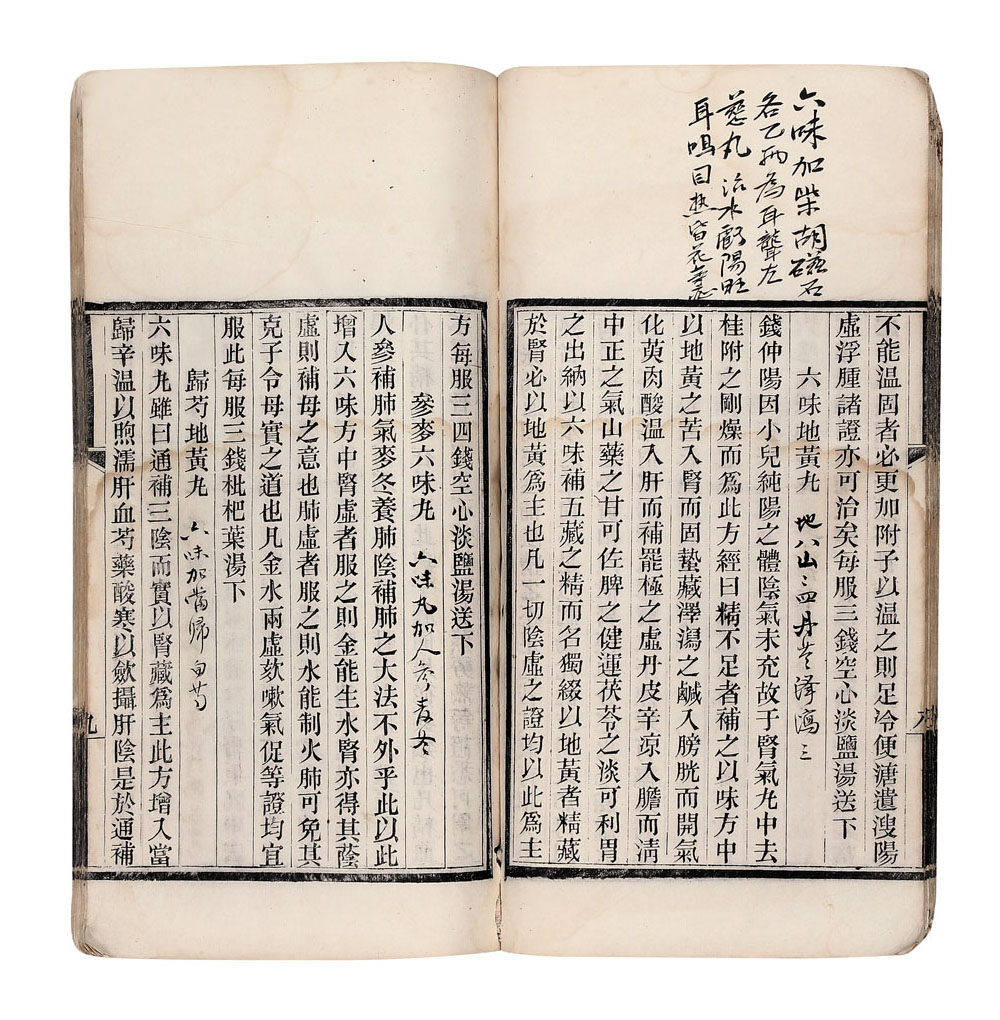 六味加柴胡磁石
各乙兩為耳聾左
慈丸 治水虧陽旺
耳鳴目熱昏花
不能溫固者必更加附子以溫之則足冷便溏遺溲陽
虛浮腫諸證亦可治矣每服三錢空心淡鹽湯送下
六味地黃九 地八山 四丹苓澤瀉三
錢仲陽因小兒純陽之體陰氣未充故于腎氣九中去
桂附之剛燥而爲此方經曰精不足者補之以味方中
以地黃之苦入腎而固蟄藏澤瀉之鹹入膀胱而開氣
化萸肉酸温入肝而補罷極之虛丹皮辛涼入膽而淸
中正之氣山藥之甘可佐脾之健運茯苓之淡可利胃
之出納以六味補五藏之精而名獨綴以地黃者精藏
於腎必以地黃爲主也凡一切陰虛之證均以此爲主
八
方每服三四錢空心淡鹽湯送下
參麥六味九 六味丸加人參麦冬
人參補肺氣麥冬養肺陰補肺之大法不外乎此以此
增入六味方中腎虛者服之則金能生水腎亦得其蔭
虛則補母之意也肺虛者服之則水能制火肺可免其
克子令母實之道也凡金水兩虛欬嗽氣促等證均宜
服此每服三錢枇杷葉湯下
歸芍地黃九 六味加當歸白芍
六味九雖曰通補三陰而實以腎藏爲主此方增入當
歸辛温以煦濡肝血芍藥酸寒以斂攝肝陰是於通補
九